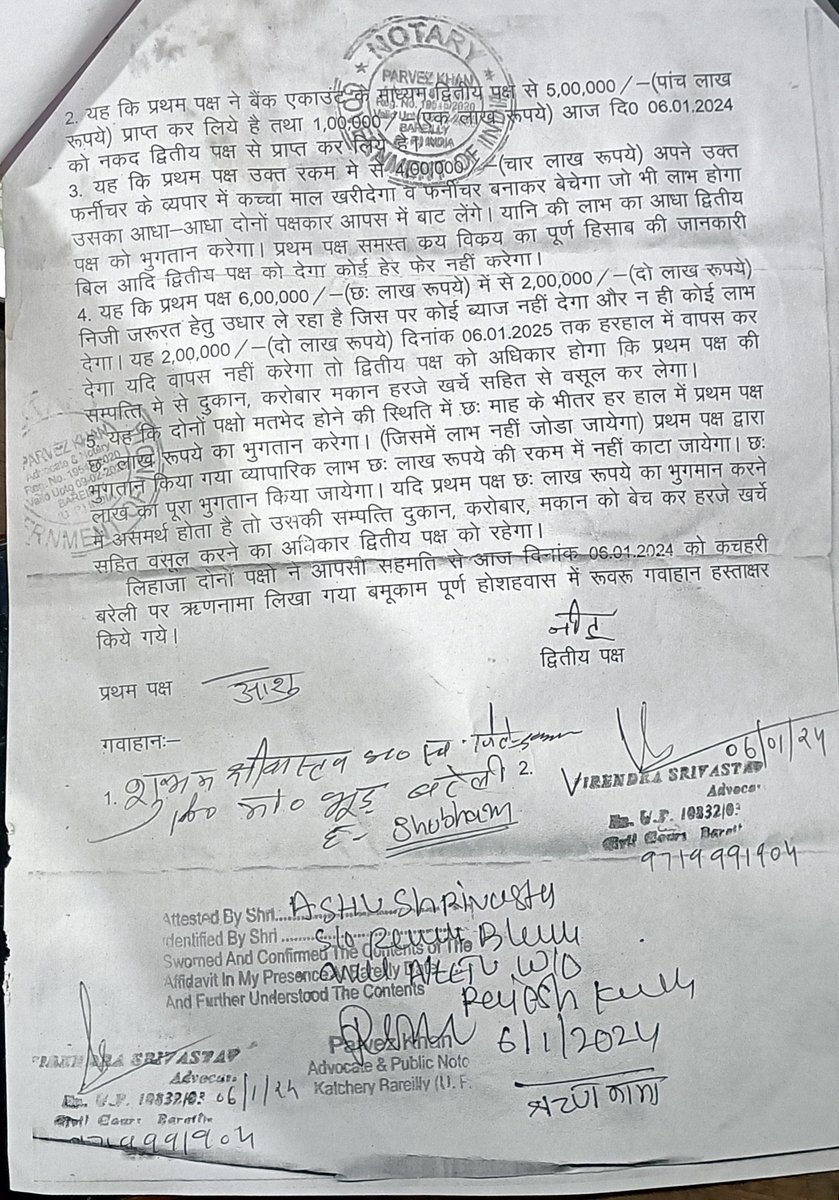 NOTARY
PARVEZ KHAN
BAREILLY
INDIA
2. यह कि प्रथम पक्ष ने बैंक एकाउंट के माध्यम द्वितीय पक्ष से 5,00,000/–(पांच लाख
रूपये) प्राप्त कर लिये है तथा 1,00,000/–(एक लाख रूपये) आज दि0 06.01.2024
को नकद द्वितीय पक्ष से प्राप्त कर लिये है।
3. यह कि प्रथम पक्ष उक्त रकम मे से 4,00,000/–(चार लाख रूपये) अपने उक्त
फर्नीचर के व्यपार में कच्चा माल खरीदेगा व फर्नीचर बनाकर बेचेगा जो भी लाभ होगा
उसका आधा–आधा दोनों पक्षकार आपस में बाट लेंगे। यानि की लाभ का आधा द्वितीय
पक्ष को भुगतान करेगा। प्रथम पक्ष समस्त क्रय विक्रय का पूर्ण हिसाब की जानकारी
बिल आदि द्वितीय पक्ष को देगा कोई हेर फेर नहीं करेगा।
4. यह कि प्रथम पक्ष 6,00,000/–(छः लाख रूपये) में से 2,00,000/–(दो लाख रूपये)
निजी जरूरत हेतु उधार ले रहा है जिस पर कोई ब्याज नहीं देगा और न ही कोई लाभ
देगा। यह 2,00,000/–(दो लाख रूपये) दिनांक 06.01.2025 तक हरहाल में वापस कर
देगा यदि वापस नहीं करेगा तो द्वितीय पक्ष को अधिकार होगा कि प्रथम पक्ष की
सम्पत्ति मे से दुकान, करोबार मकान हरजे खर्चे सहित से वसूल कर लेगा।
5. यह कि दोनों पक्षो मतभेद होने की स्थिति में छः माह के भीतर हर हाल में प्रथम पक्ष
छः लाख रूपये का भुगतान करेगा। (जिसमें लाभ नहीं जोडा जायेगा) प्रथम पक्ष द्वारा
भुगतान किया गया व्यापारिक लाभ छः लाख रूपये की रकम में नहीं काटा जायेगा। छः
लाख का पूरा भुगतान किया जायेगा। यदि प्रथम पक्ष छः लाख रूपये का भुगमान करने
में असमर्थ होता है तो उसकी सम्पत्ति दुकान, करोबार, मकान को बेच कर हरजे खर्चे
सहित वसूल करने का अधिकार द्वितीय पक्ष को रहेगा।
लिहाजा दोनों पक्षो ने आपसी सहमति से आज दिनांक 06.01.2024 को कचहरी
बरेली पर ऋणनामा लिखा गया बमूकाम पूर्ण होशहवास में रूवरू गवाहान हस्ताक्षर
किये गये।
नीतू
द्वितीय पक्ष
प्रथम पक्ष आशु
गवाहानः–
1. शुभम श्रीवास्तव
बरेली
Shubham
2.
06/01/24
VIRENDRA SRIVASTAV
Advocate
En. U.P. 10832/03
Civil Court Bareilly
9719991904
Attested By Shri..... Ashu Shrivastav
Identified By Shri
Sworned And Confirmed The Contents of The
Affidavit In My Presence
And Further Understood The Contents
6/1/2024
Parvez Khan
Advocate & Public Noto
Katchery Bareilly (U.P.
ऋण नामा
VIRENDRA SRIVASTAV
Advocate
En. U.P. 10832/03 06/1/24
Civil Court Bareilly
9719991904